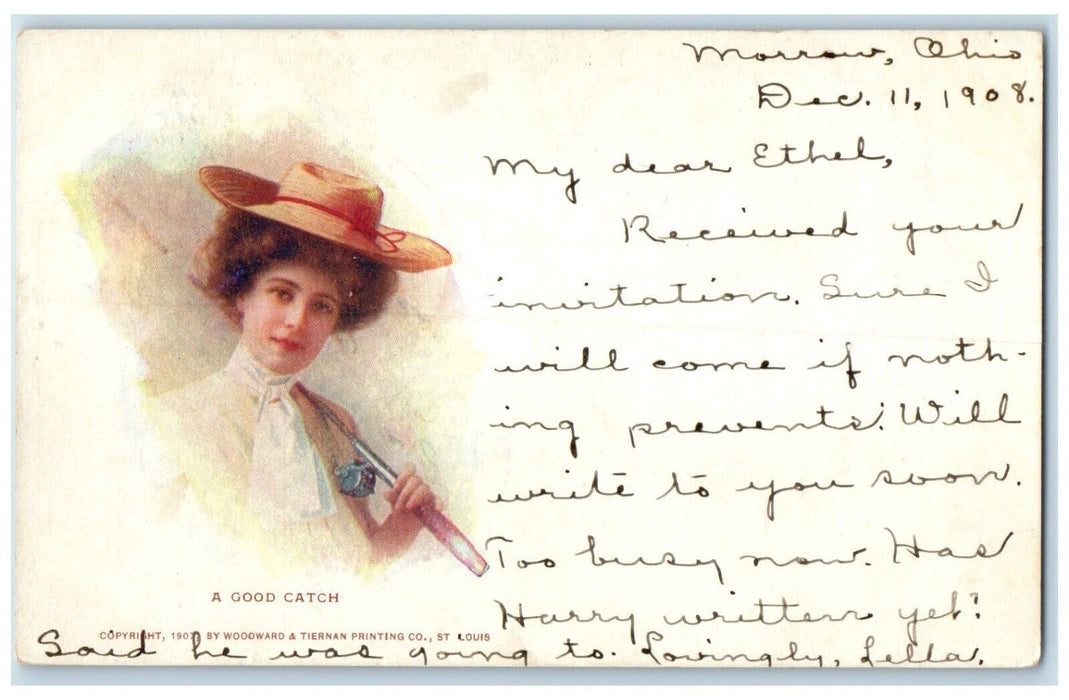 Morrow, Ohio
Dec. 11, 1908.
My dear Ethel,
Received your
invitation. Sure I
will come if noth-
ing prevents. Will
write to you soon.
Too busy now. Has
Harry written yet?
Said he was going to. Lovingly, Lella.
A GOOD CATCH
COPYRIGHT, 1907, BY WOODWARD & TIERNAN PRINTING CO., ST LOUIS